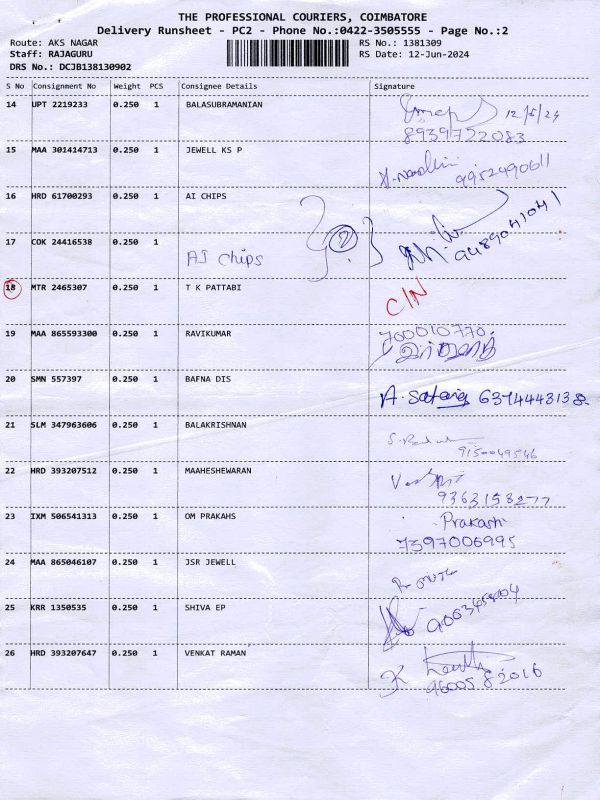 THE PROFESSIONAL COURIERS, COIMBATORE
Delivery Runsheet - PC2 - Phone No.:0422-3505555 - Page No.:2
Route: AKS NAGAR RS No.: 1381309
Staff: RAJAGURU RS Date: 12-Jun-2024
DRS No.: DCJB138130902
S No Consignment No Weight PCS Consignee Details Signature
14 UPT 2219233 0.250 1 BALASUBRAMANIAN 12/6/24
8939752083
15 MAA 301414713 0.250 1 JEWELL KS P
9952490611
16 HRD 61700293 0.250 1 AI CHIPS
17 COK 24416538 0.250 1 AI chips 2 9489041041
18 MTR 2465307 0.250 1 T K PATTABI C/N
19 MAA 865593300 0.250 1 RAVIKUMAR 700010770
20 SMN 557397 0.250 1 BAFNA DIS 6374448138
21 SLM 347963606 0.250 1 BALAKRISHNAN
9150049546
22 HRD 393207512 0.250 1 MAAHESHEWARAN
9363158277
23 IXM 506541313 0.250 1 OM PRAKAHS Prakash
7397006995
24 MAA 865046107 0.250 1 JSR JEWELL
25 KRR 1350535 0.250 1 SHIVA EP
26 HRD 393207647 0.250 1 VENKAT RAMAN K
9600582016